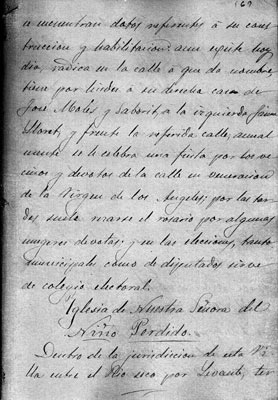 169
e encuentran datos referentes à su cons
truccion y habilitacion: aun existe hoy
dia, radica en la calle à que da nombre,
tiene por lindes à su derecha casa de
José Moles y Saborit, à la izquierda Jaime
Lloret, y frente la referida calle, anual
mente se le celebra una fiesta por los ve
cinos y devotos de la calle en veneracion
de la Virgen de los Angeles; por las tar
des suele rezarse el rosario por algunas
mugeres devotas: y en las elecciones, tanto
municipales como de diputados sirve
de colegio electoral.
Iglesia de Nuestra Señora del
Niño Perdido.
Dentro de la jurisdiccion de esta Vi
lla entre el Rio seco por Levante, ter